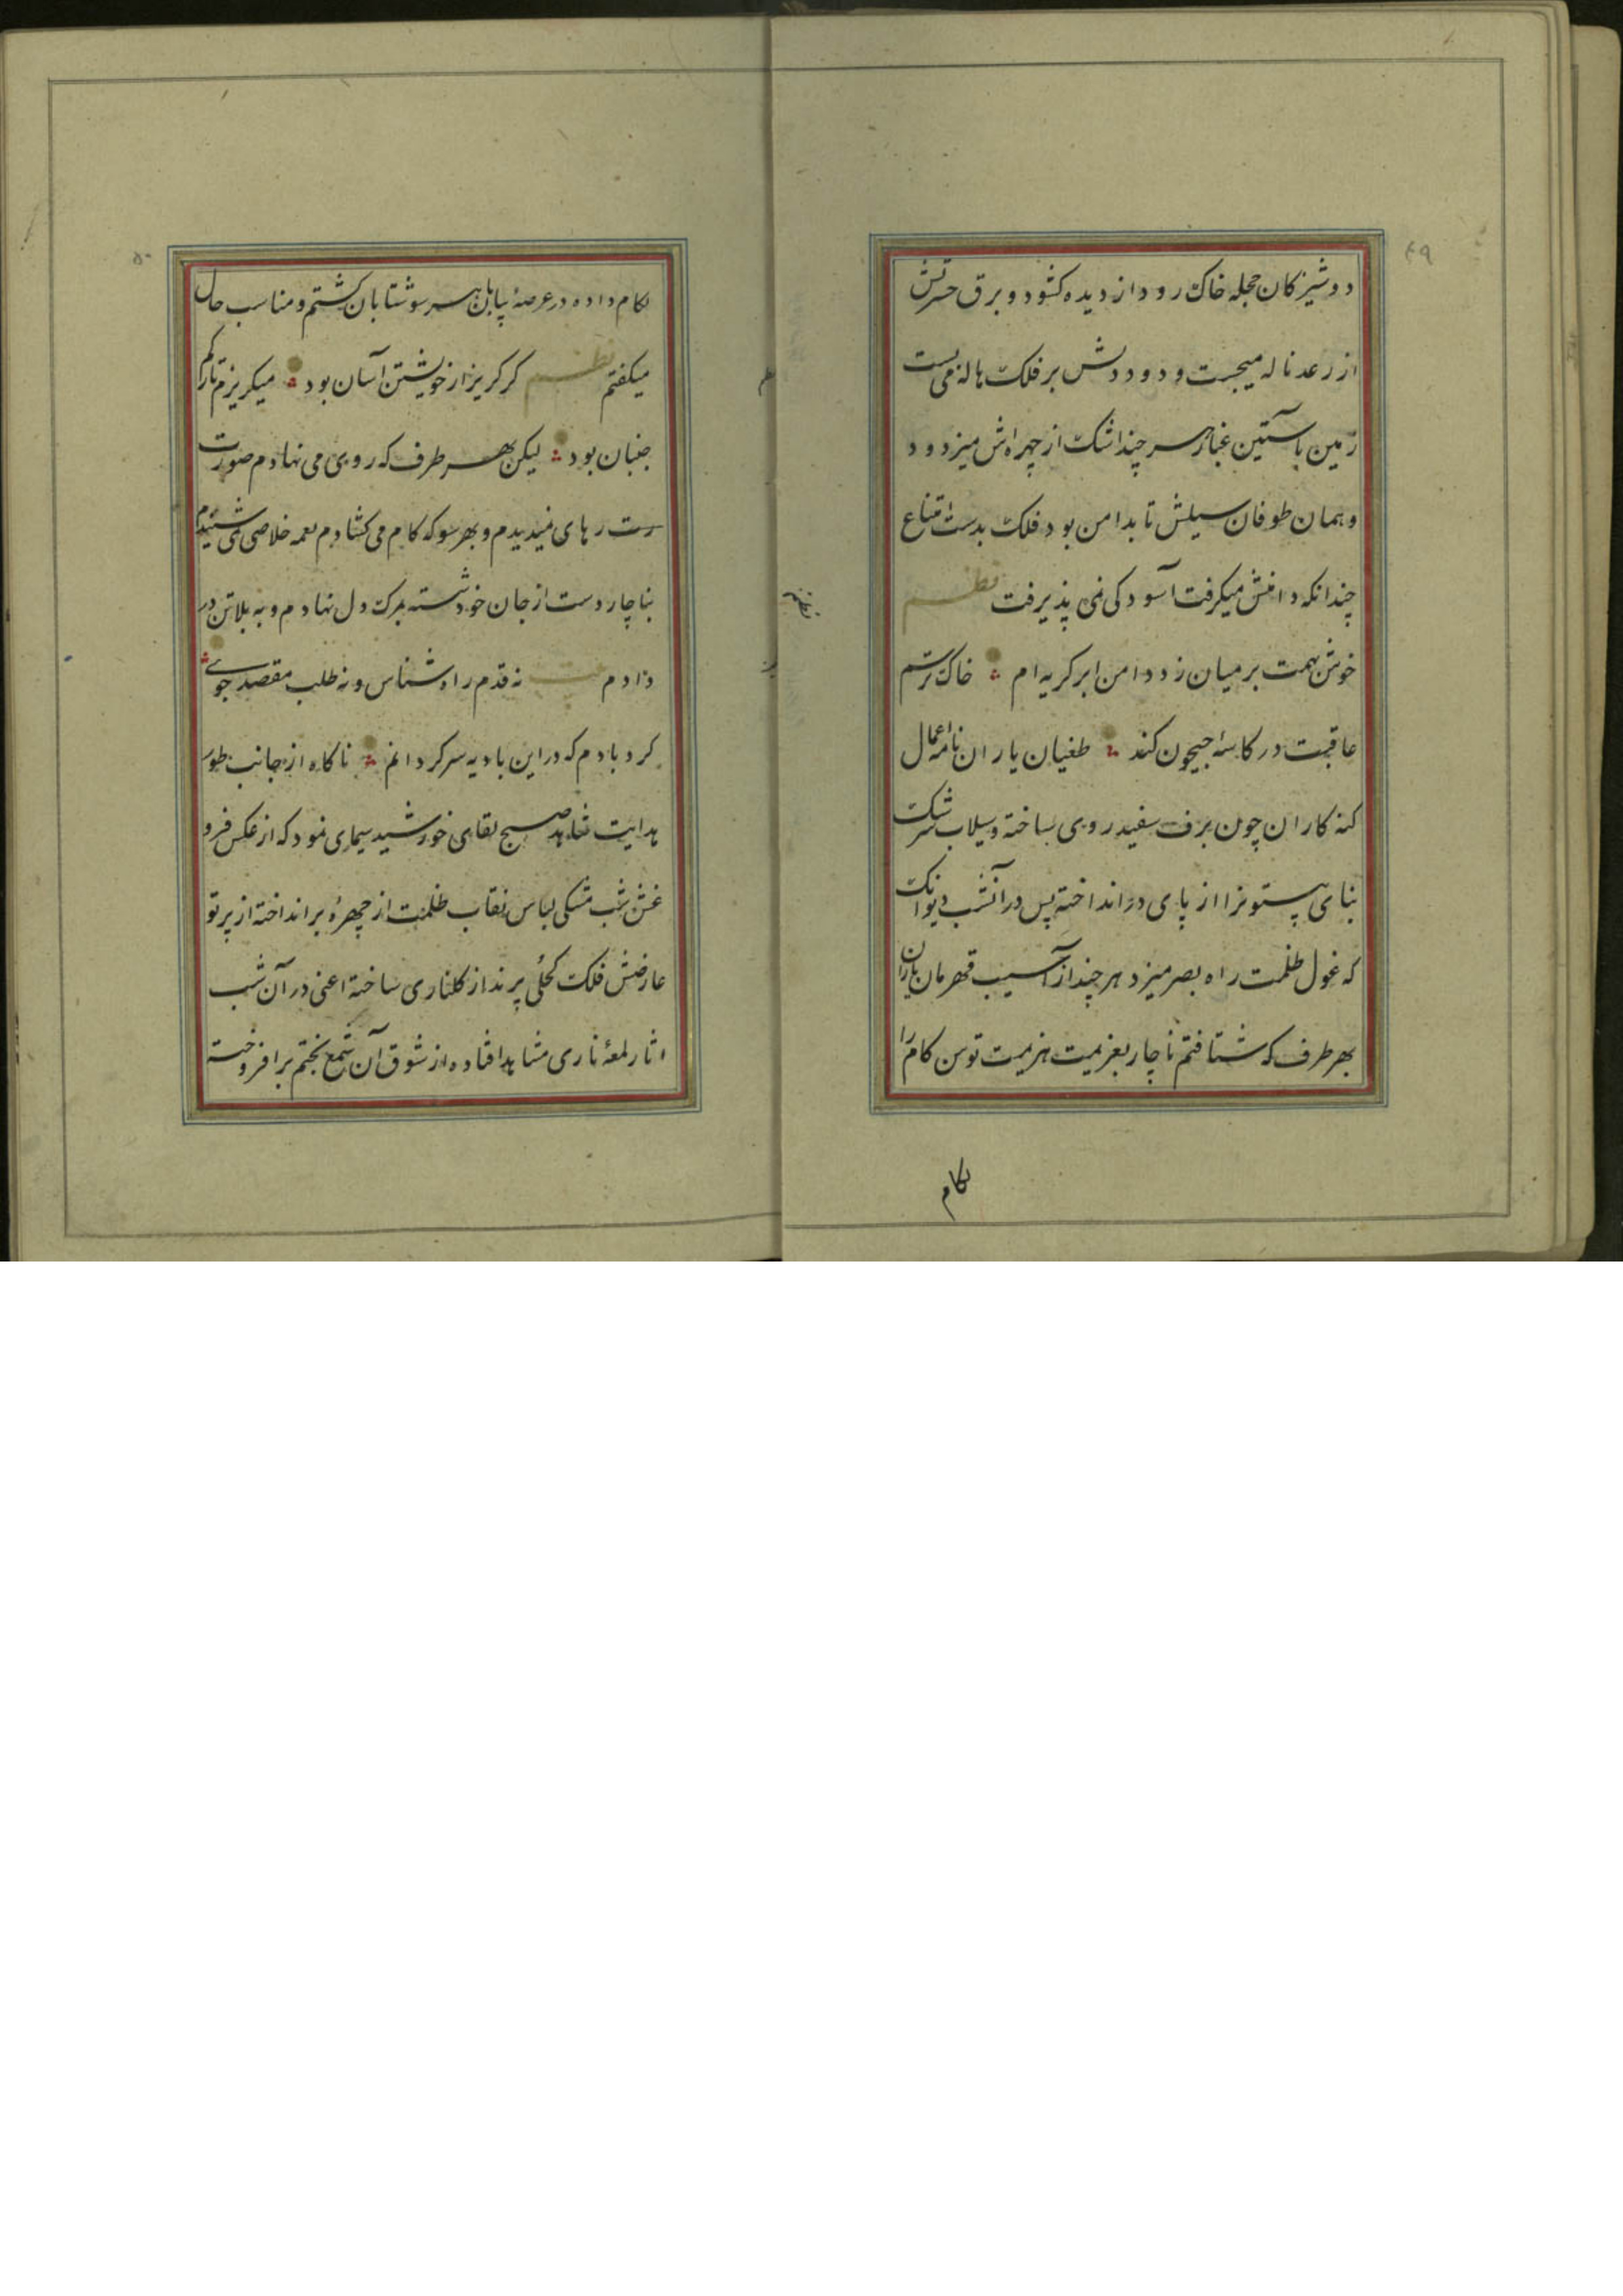 ۴۹
دوشیزکان حجله خاک رود از دیده کشود و برق حسرتش
از رعد ناله میجست و دود دلش بر فلک هاله می بست
زمین باستین غبار هر چند اشک از چهره اش میزدود
و همان طوفان سیلش تا بدامن بود فلک بدست اقناع
چندانکه دامنش میکرفت آسودکی نمی پذیرفت نظم
خوش همت بر میان زد دامن ابر کریه ام خاک ترسم
عاقبت در کاسه جیحون کند طغیان باران نامه اعمال
کنه کاران چون برف سفید روی ساخته و سیلاب سرشک
بنای بیستونرا از پای در انداخته پس در آنشب دیوانک
که غول ظلمت راه بصر میزد هر چند از آسیب قهرمان باران
بهر طرف که شتافتم ناچار بعزیمت هزیمت توسن کام را
لکام
۵۰
لکام داده در عرصۀ بیابان بهر سو شتابان کشتم و مناسب حال
میکفتم نظم کر کریز از خویشتن آسان بود میکریزم تا رکم
جنبان بود لیکن بهر طرف که روی می نهادم صورت
رستـ رهای نمیدیدم و بهر سو که کام می کشادم نعمه خلاصی نمی شنیدم
بناچار دست از جان خود شسته بمرک دل نهادم و به بلا تن در
دادم بیت نه قدم راه شناس و نه طلب مقصد جوی
کرد بادم که در این بادیه سرکردانم ناکاه از جانب طور
هدایت شاهد صبح لقای خورشید سیمای نمود که از عکس فرو
غش شب مشکی لباس نقاب ظلمت از چهرۀ بر انداخته از پرتو
عارضش فلک کحلی پرند از کلناری ساخته اعنی در آن شب
اثار لمعۀ ناری مشاهد افتاده از شوق آن شمع بختم بر افروخته